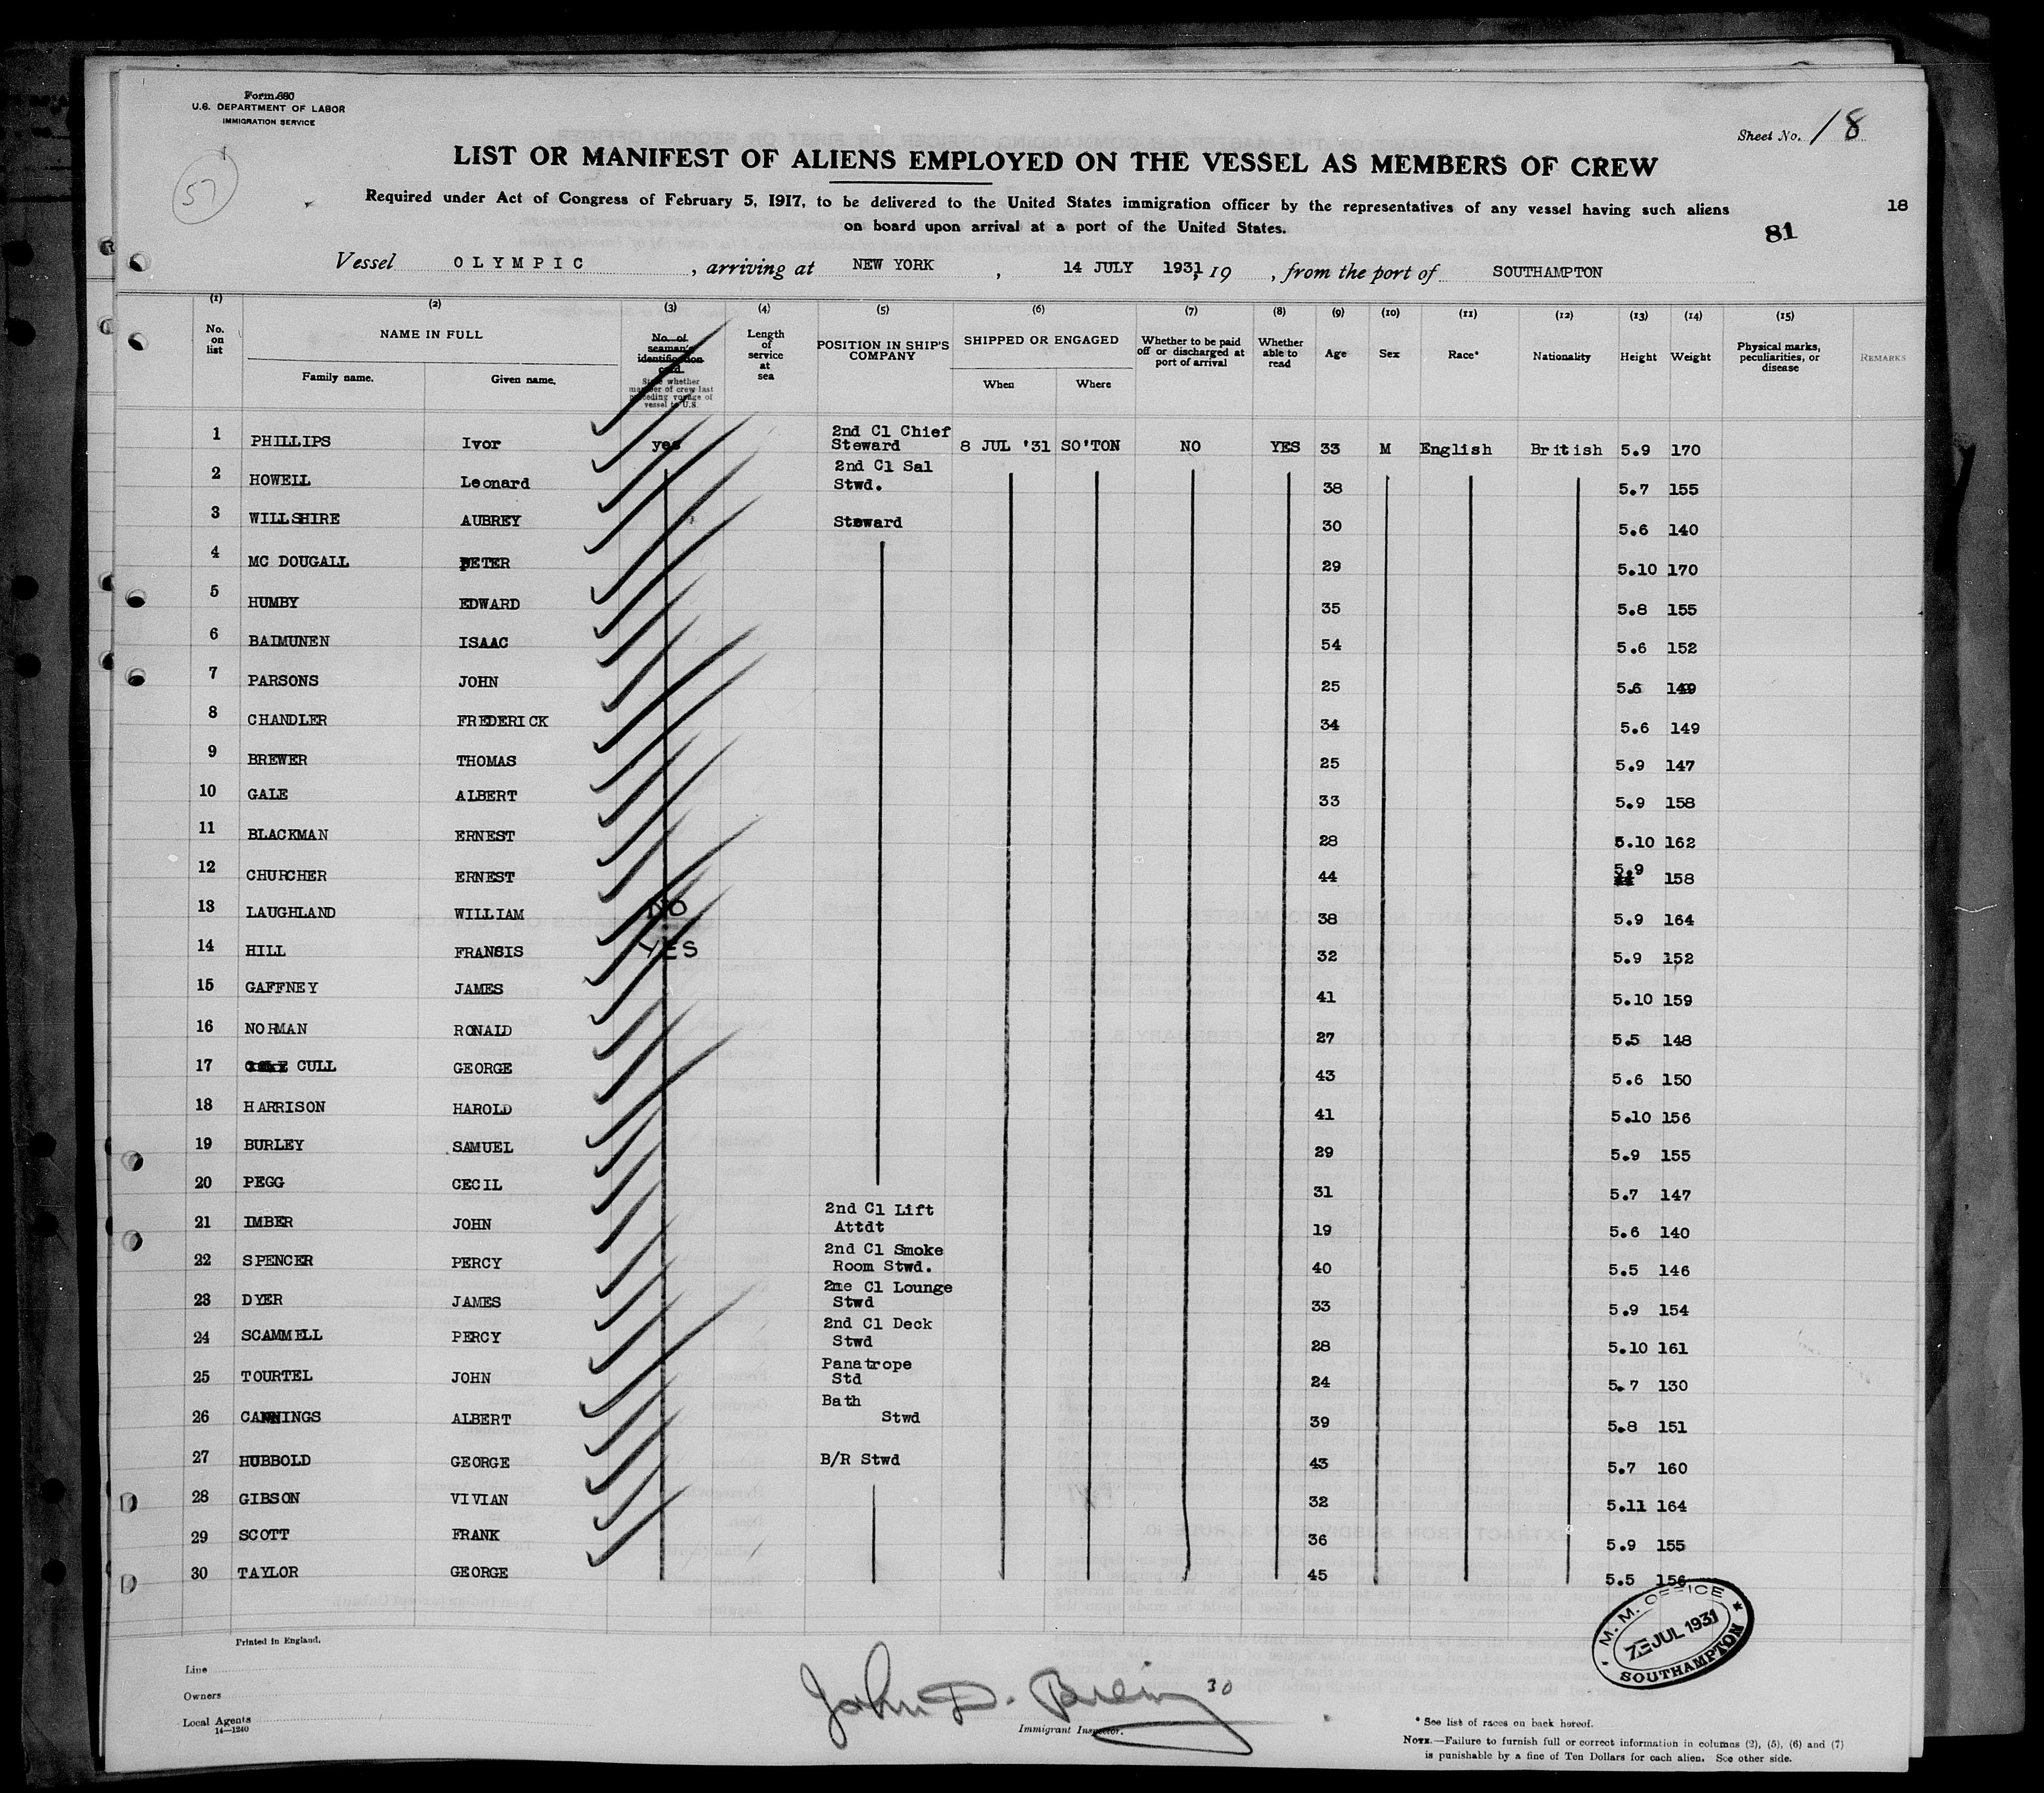 Form 680
U.S. DEPARTMENT OF LABOR
IMMIGRATION SERVICE
Sheet No. 18
57
LIST OR MANIFEST OF ALIENS EMPLOYED ON THE VESSEL AS MEMBERS OF CREW
Required under Act of Congress of February 5, 1917, to be delivered to the United States immigration officer by the representatives of any vessel having such aliens
on board upon arrival at a port of the United States.
18
81
Vessel OLYMPIC, arriving at NEW YORK, 14 JULY 1931, 19 , from the port of SOUTHAMPTON
(1) (2) (3) (4) (5) (6) (7) (8) (9) (10) (11) (12) (13) (14) (15)
No. on list NAME IN FULL Family name. Given name. No. of seaman's identification card. State whether member of crew last preceding voyage of vessel to U.S. Length of service at sea POSITION IN SHIP'S COMPANY SHIPPED OR ENGAGED When Where Whether to be paid off or discharged at port of arrival Whether able to read Age Sex Race* Nationality Height Weight Physical marks, peculiarities, or disease REMARKS
1 PHILLIPS Ivor yes 2nd Cl Chief Steward 8 JUL '31 SO'TON NO YES 33 M English British 5.9 170
2 HOWELL Leonard 2nd Cl Sal Stwd. 38 5.7 155
3 WILLSHIRE AUBREY Steward 30 5.6 140
4 MC DOUGALL PETER 29 5.10 170
5 HUMBY EDWARD 35 5.8 155
6 BAIMUNEN ISAAC 54 5.6 152
7 PARSONS JOHN 25 5.6 149
8 CHANDLER FREDERICK 34 5.6 149
9 BREWER THOMAS 25 5.9 147
10 GALE ALBERT 33 5.9 158
11 BLACKMAN ERNEST 28 5.10 162
12 CHURCHER ERNEST 44 5.9 158
13 LAUGHLAND WILLIAM NO 38 5.9 164
14 HILL FRANSIS YES 32 5.9 152
15 GAFFNEY JAMES 41 5.10 159
16 NORMAN RONALD 27 5.5 148
17 CULL GEORGE 43 5.6 150
18 HARRISON HAROLD 41 5.10 156
19 BURLEY SAMUEL 29 5.9 155
20 PEGG CECIL 31 5.7 147
21 IMBER JOHN 2nd Cl Lift Attdt 19 5.6 140
22 SPENCER PERCY 2nd Cl Smoke Room Stwd. 40 5.5 146
23 DYER JAMES 2ne Cl Lounge Stwd 33 5.9 154
24 SCAMMELL PERCY 2nd Cl Deck Stwd 28 5.10 161
25 TOURTEL JOHN Panatrope Std 24 5.7 130
26 CANNINGS ALBERT Bath Stwd 39 5.8 151
27 HUBBOLD GEORGE B/R Stwd 43 5.7 160
28 GIBSON VIVIAN 32 5.11 164
29 SCOTT FRANK 36 5.9 155
30 TAYLOR GEORGE 45 5.5 156
M. M. OFFICE
JUL 1931
SOUTHAMPTON
Printed in England.
Line
Owners
Local Agents
14—1240
John D.
30
Immigrant Inspector.
* See list of races on back hereof.
NOTE.—Failure to furnish full or correct information in columns (2), (5), (6) and (7)
is punishable by a fine of Ten Dollars for each alien. See other side.